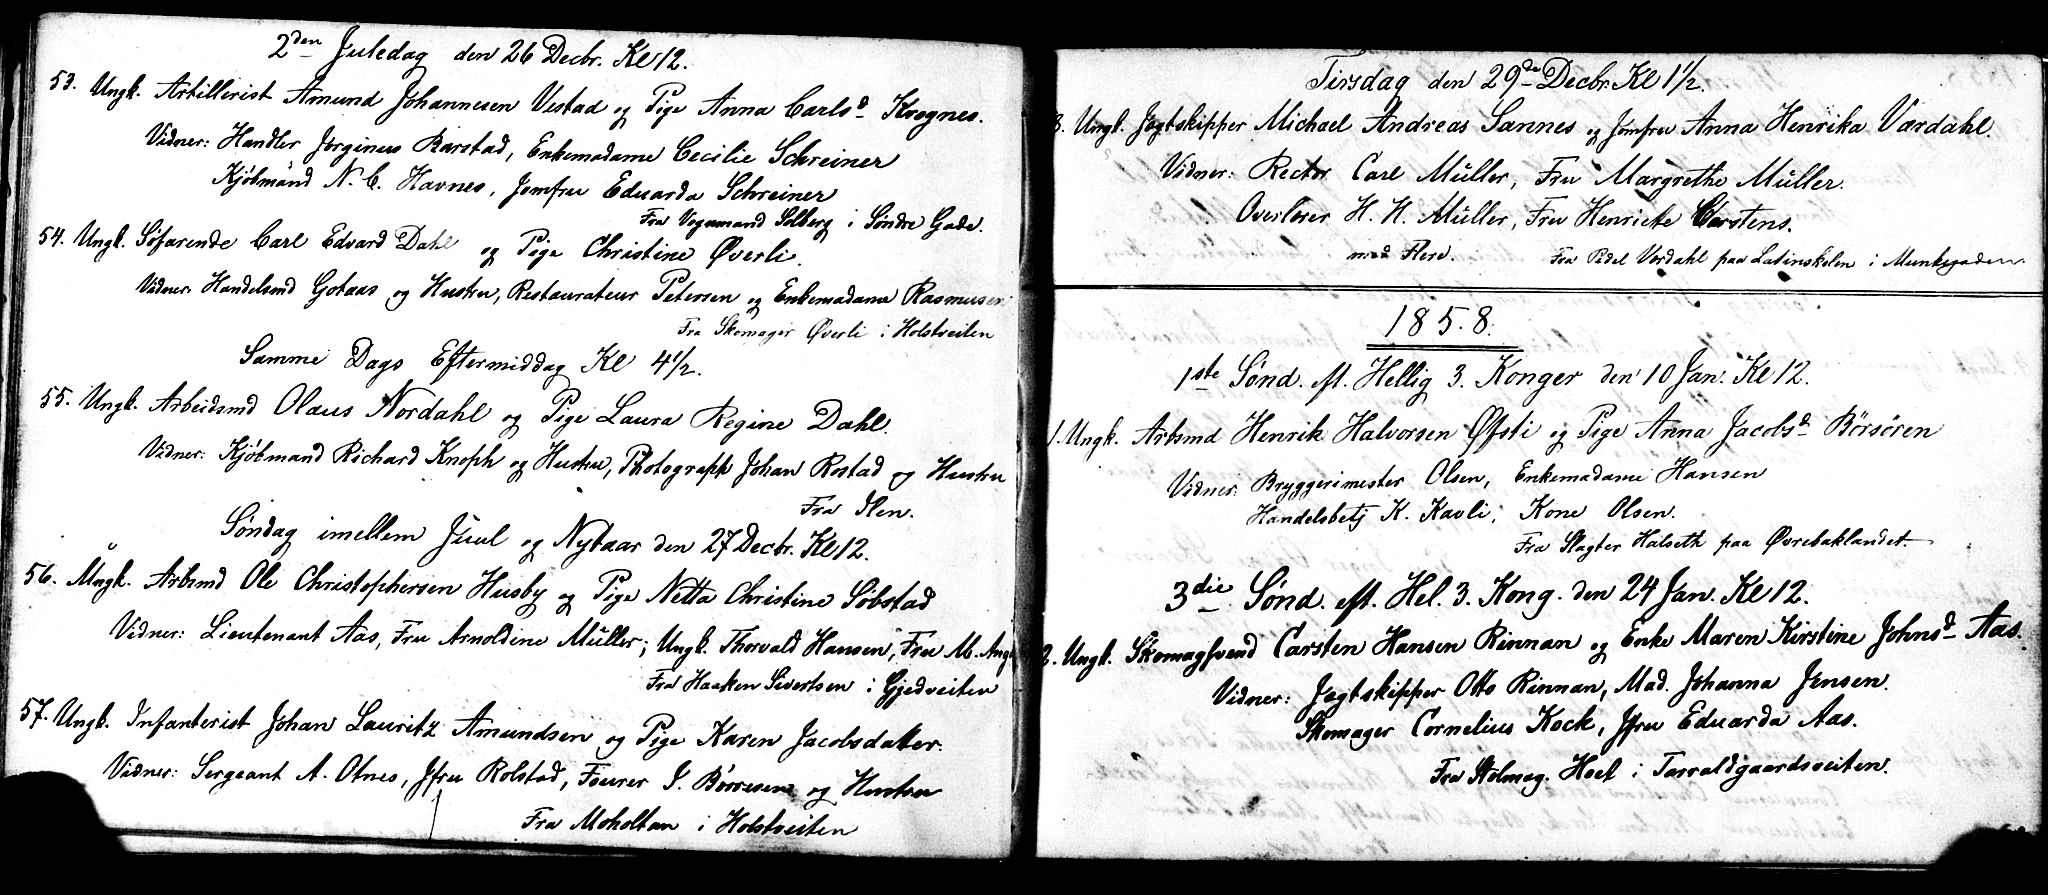 2den Juledag den 26 Decbr. Kl 12.
53. Ungk. Artillerist Amund Johannesen Vestad og Pige Anna Carlsd. Kvegnes.
Vidner: Handler Jørginus Barstad, Enkemadame Cecilie Schreiner
Kjöbmand N. C. Havnes, Jomfru Eduarda Schreiner
Fra Vognmand Solberg i Søndre Gade.
54. Ungk. Søfarende Carl Edvard Dahl og Pige Christine Øverli.
Vidner: Handelsmd Gotaas og Hustru, Restaurateur Petersen og Enkemadame Rasmusen
Fra Skomager Øverli i Holstveiten
Samme Dags Eftermiddag Kl 4 1/2.
55. Ungk. Arbeidsmd Olaus Nordahl og Pige Laura Regine Dahl.
Vidner: Kjöbmand Richard Knoph og Hustru, Photograph Johan Rostad og Hustru
Fra Ilen.
Søndag imellem Juul og Nytaar den 27 Decbr. Kl 12.
56. Ungk. Arbsmd Ole Christophersen Husby og Pige Netta Christine Söbstad
Vidner: Lieutenant Aas, Fru Arnoldine Müller; Ungk. Thorvald Hansen, Fru M.
Fra Haaken Sivertsen i Gjedveiten
57. Ungk. Infanterist Johan Lauritz Amundsen og Pige Karen Jacobsdatter.
Vidner: Sergeant A. Otnes, Jfru Rolstad, Fourer I. Börresen og Hustru
Fra Moholtan i Holstveiten
Tirsdag den 29de Decbr. Kl 1 1/2.
8. Ungk. Jagtskipper Michael Andreas Sannes og Jomfru Anna Henrika Værdahl.
Vidner: Rector Carl Müller, Fru Margrethe Müller.
Overlærer H. H. Müller, Fru Henriete Carstens.
med Flere. Fra Pedel Værdahl paa Latinskolen i Munkegaden
1858.
1ste Sønd. eft. Hellig 3. Konger den 10 Jan. Kl 12.
1. Ungk. Arbsmd Henrik Halvorsen Øfsti og Pige Anna Jacobsd. Börsören
Vidner: Bryggerimester Olsen, Enkemadame Hansen
Handelsbetj K. Kavli, Kone Olsen.
Fra Slagter Halseth paa Øvrebaklandet.
3die Sønd. eft. Hel. 3. Kong. den 24 Jan. Kl 12.
2. Ungk. Skomagsvend Carsten Hansen Rinnan og Enke Maren Kirstine Johnsd. Aas.
Vidner: Jagtskipper Otto Rinnan, Mad. Johanna Jensen.
Skomager Cornelius Kock, Jfru Eduarda Aas.
Fra Stolmag. Hoel i Taraldgaardsveiten.